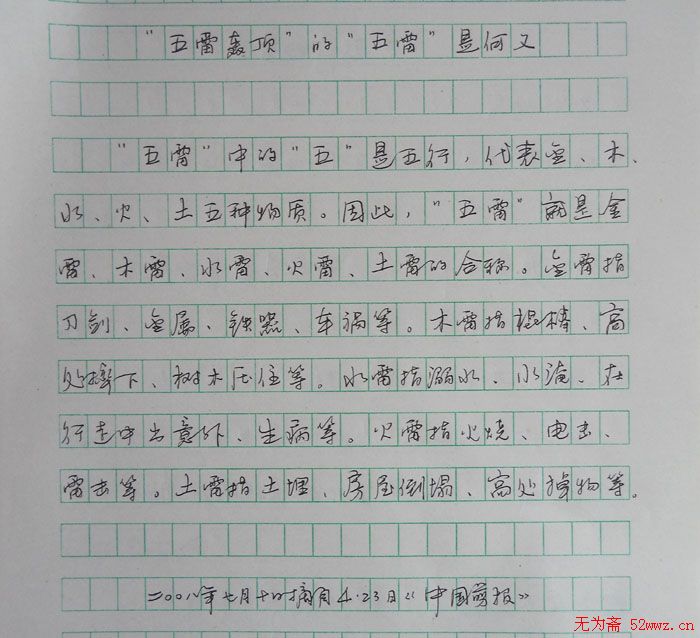 “五雷轰顶”的“五雷”是何义
“五雷”中的“五”是五行，代表金、木、
水、火、土五种物质。因此，“五雷”就是金
雷、木雷、水雷、火雷、土雷的合称。金雷指
刀剑、金属、铁器、车祸等。木雷指棍棒、高
处摔下、树木压住等。水雷指溺水、水淹、在
行走中出意外、生病等。火雷指火烧、电击、
雷击等。土雷指土埋、房屋倒塌、高处掉物等。
二〇〇八年七月十日摘自4.23日《中国剪报》
无为斋 52wwz.cn